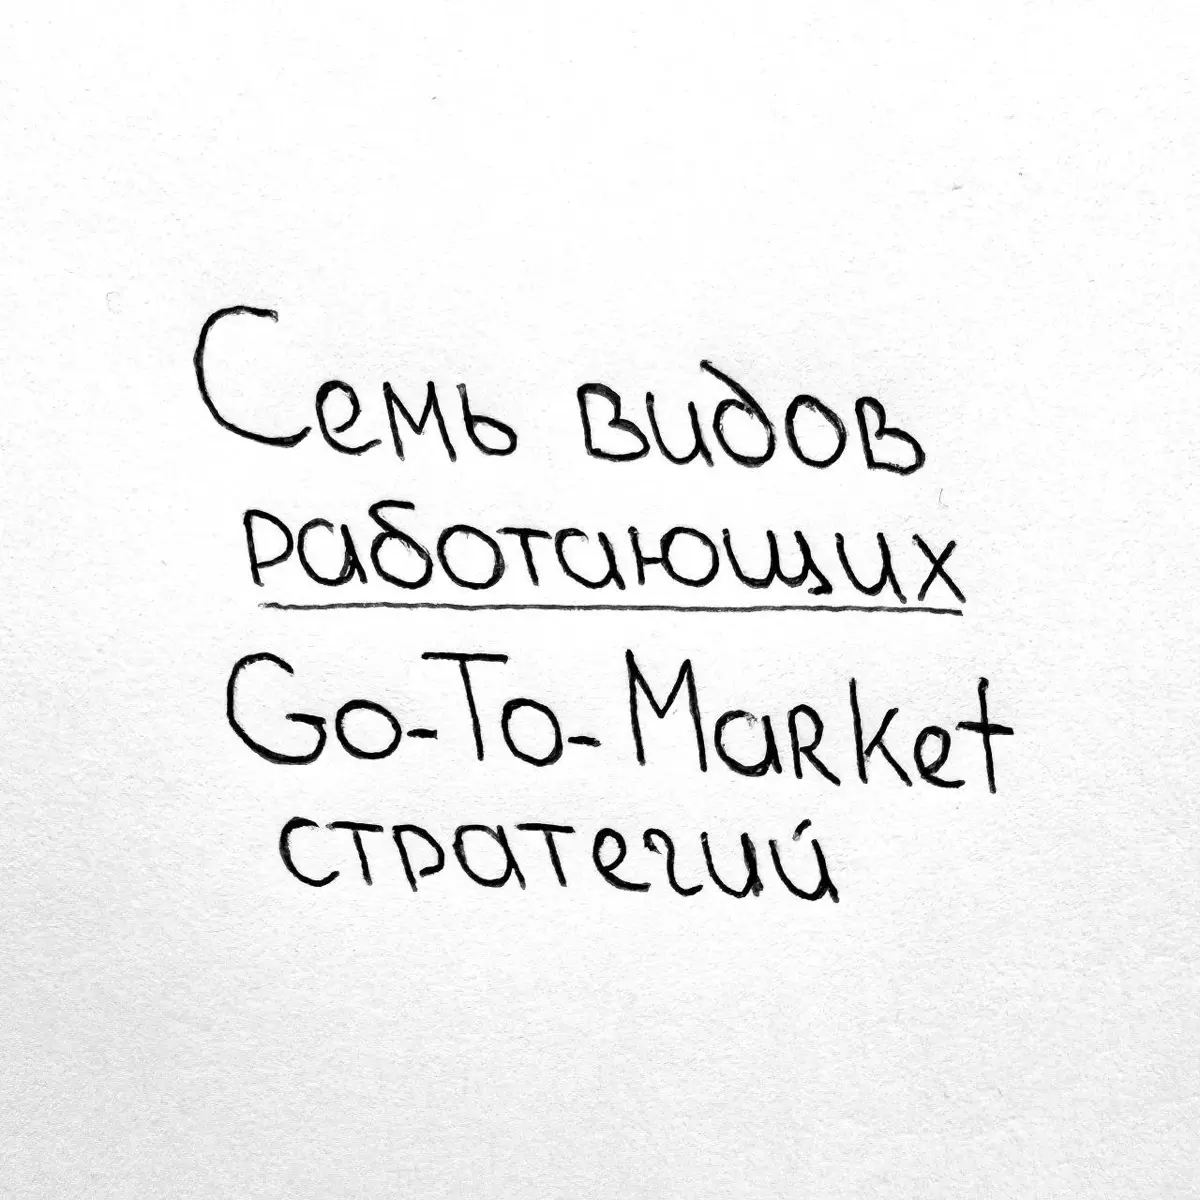 Семь видов
работающих
Go-To-Market
стратегий